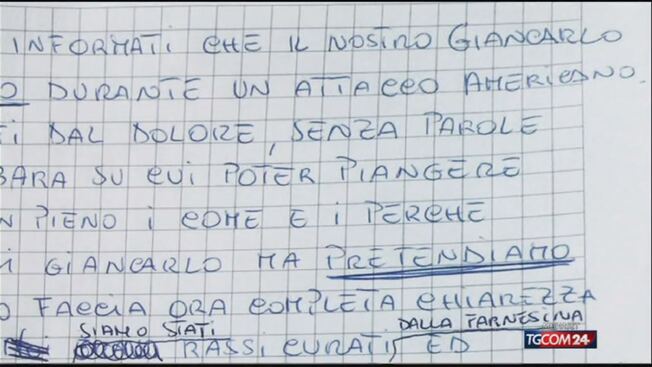 INFORMATI CHE IL NOSTRO GIANCARLO
O DURANTE UN ATTACCO AMERICANO.
TI DAL DOLORE, SENZA PAROLE
BARA SU CUI POTER PIANGERE
N PIENO I COME E I PERCHE
I GIANCARLO MA PRETENDIAMO
O FACCIA ORA COMPLETA CHIAREZZA
SIAMO STATI DALLA FARNESINA
RASSICURATI ED
TGCOM24